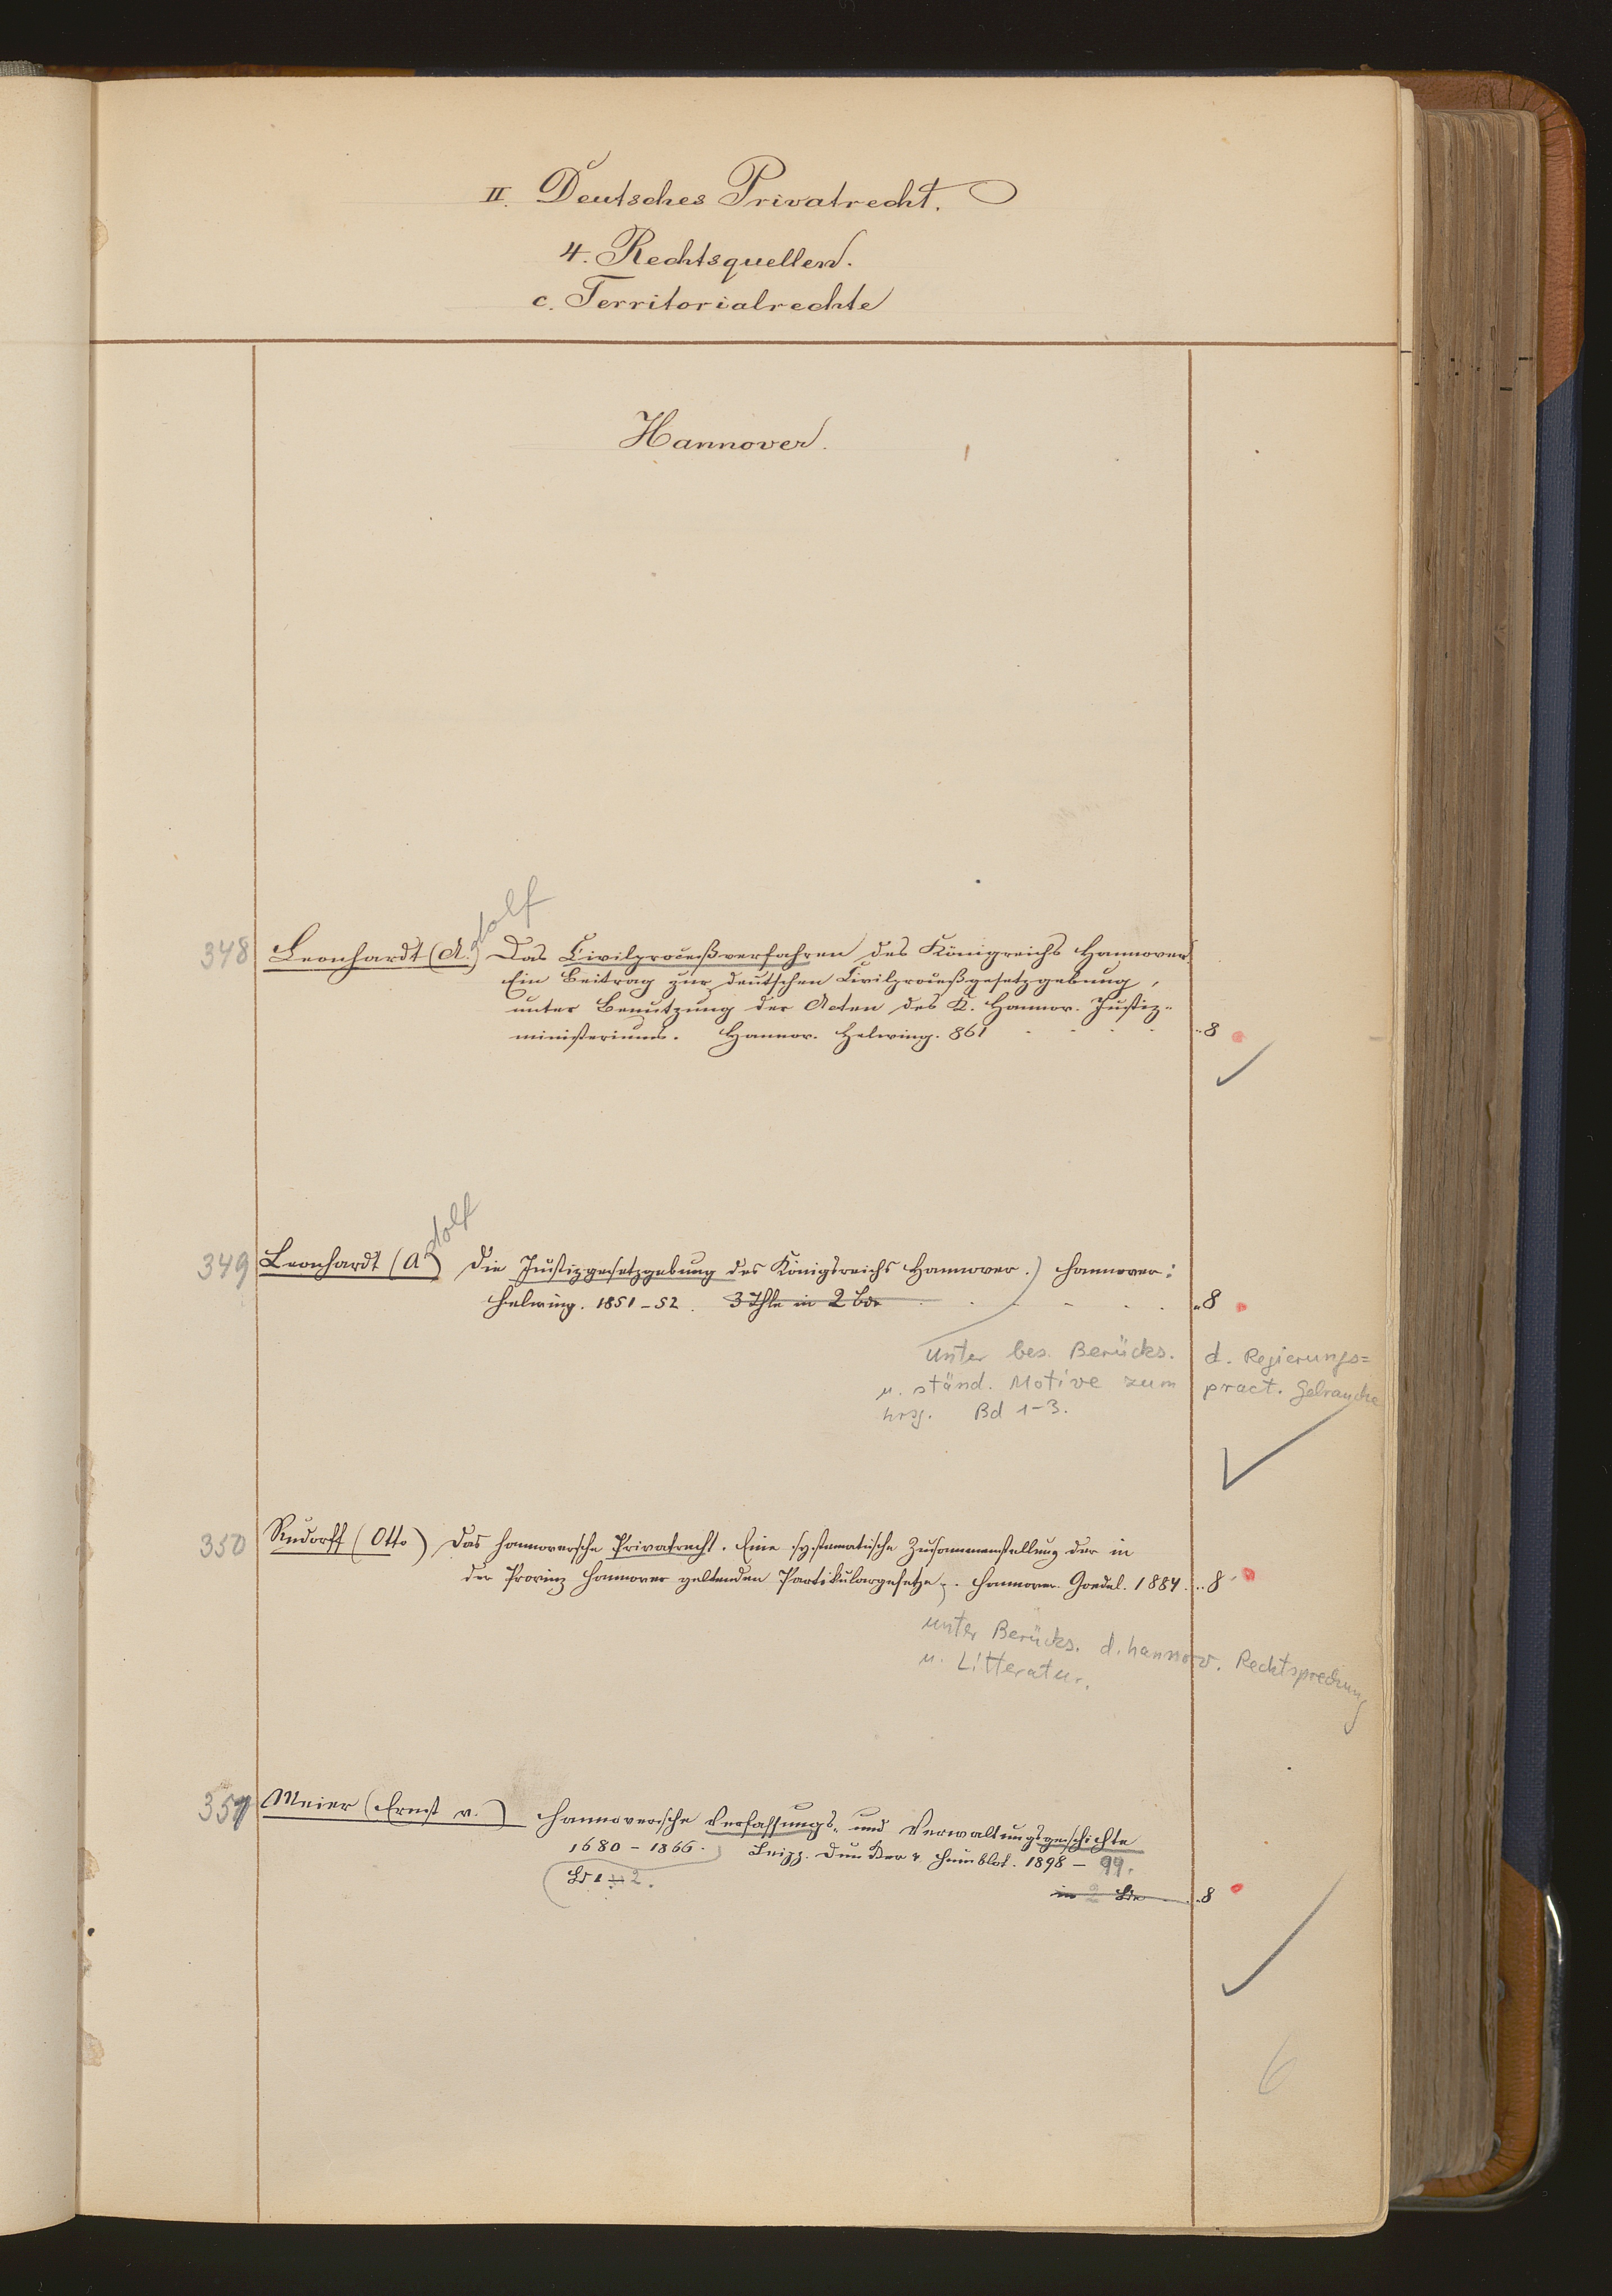 II. Deutsches Privatrecht.
4. Rechtsquellen.
c. Territorialrechte
Hannover.
348 Leonhardt (A.dolf) Das Civilproceßverfahren des Königreichs Hannover.
Ein Beitrag zur deutschen Civilproceßgesetzgebung,
unter Benutzung der Acten des K. Hannov. Justiz-
ministeriums. Hannov. Helwing. 861 8
349 Leonhardt (Adolf) Die Justizgesetzgebung des Königsreichs Hannover.) Hannover:
Helwing. 1851-52. 3 Thle in 2 Bde 8
unter bes. Berücks. d. Regierungs=
u. ständ. Motive zum pract. Gebrauche
hrsg. Bd 1-3.
350 Rudorff (Otto) Das hannoversche Privatrecht. Eine systematische Zusammenstellung der in
der Provinz Hannover geltenden Partikulargesetze. Hannover. Goedel. 1884. 8
unter Berücks. d. hannov. Rechtsprechung
u. Litteratur.
351 Meier (Ernst v.) Hannoversche Verfassungs- und Verwaltungsgeschichte
1680-1866. Leipz. Duncker & Humblot. 1898-99.
Bd 1 2.
in 2 Bde 8
6